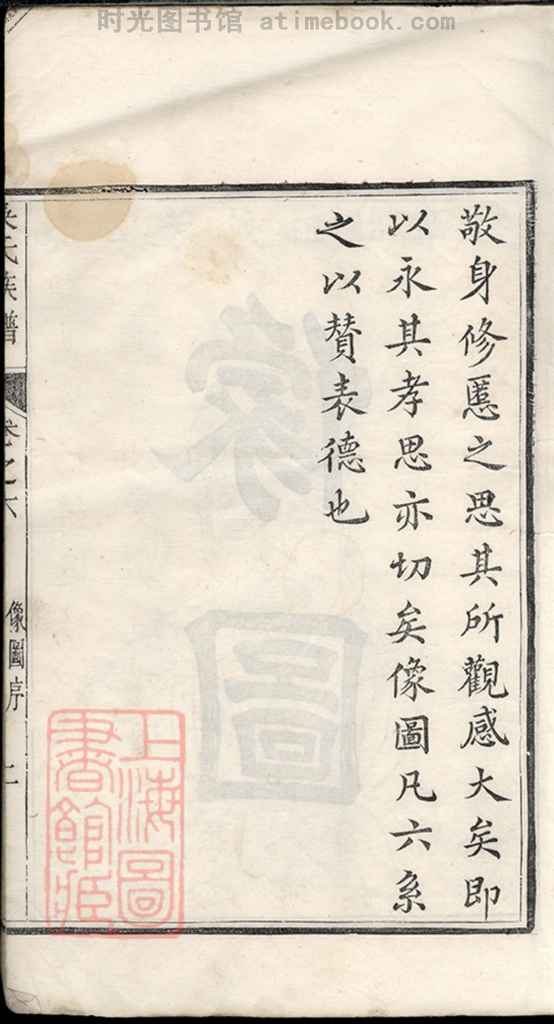 时光图书馆 atimebook.com
敬身修慝之思其所觀感大矣即
以永其孝思亦切矣像圖凡六系
之以贊表德也
氏族譜
卷之六
像圖序
上海圖
書館藏
像圖